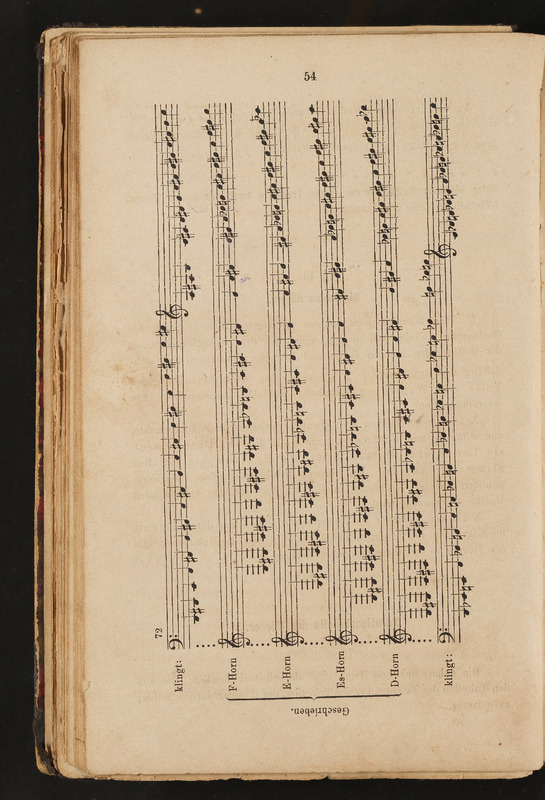 54
72
klingt:
F-Horn
E-Horn
Es-Horn
D-Horn
klingt:
Geschrieben.